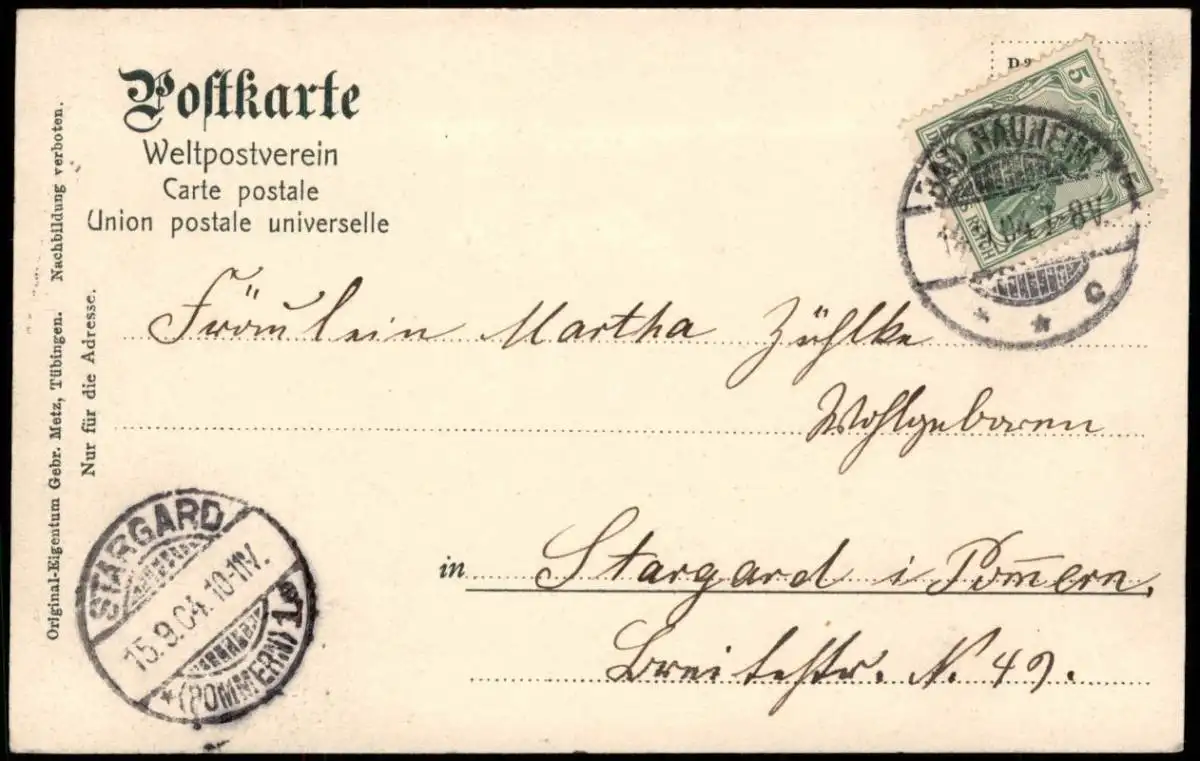 Postkarte
Weltpostverein
Carte postale
Union postale universelle
Nur für die Adresse.
Original-Eigentum Gebr. Metz, Tübingen. Nachbildung verboten.
5
5
REICH
BAD NAUHEIM
04. 7-8V.
c
Fräulein Martha Zühlke
Wohlgeboren
in Stargard i Pom̄ern.
Breitestr. N. 49.
STARGARD
15.9.04. 10-11V.
* (POMMERN) 1.